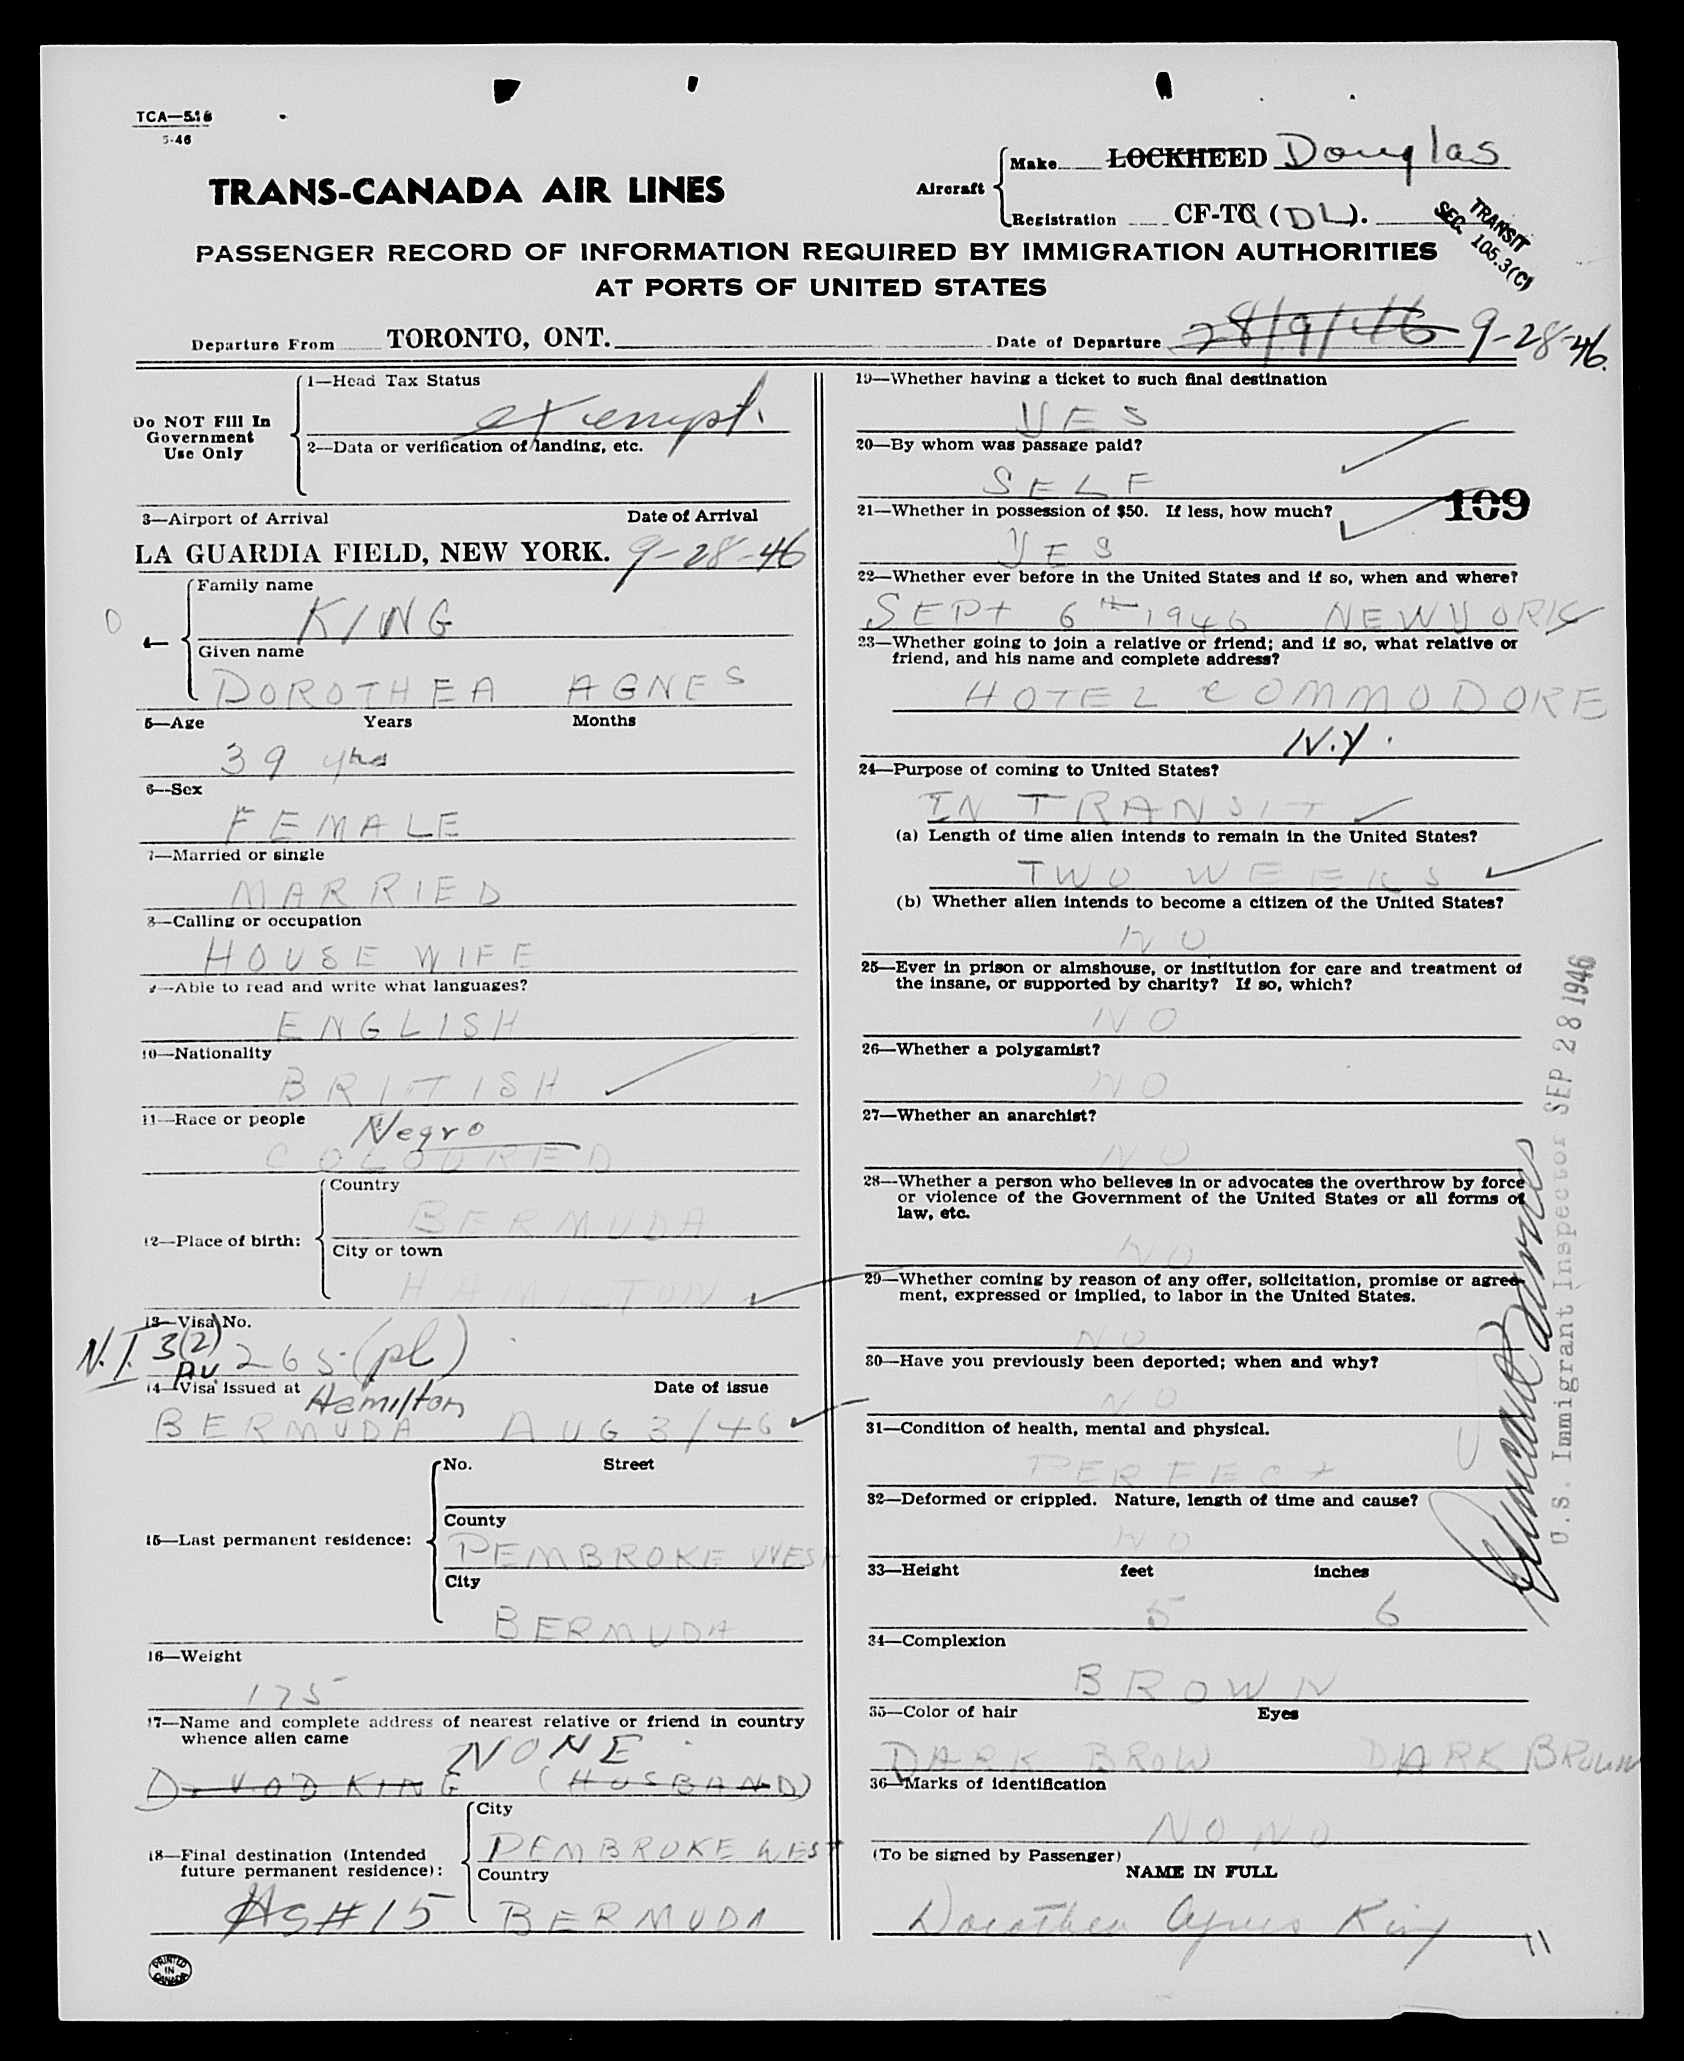 TCA—518
5-46
TRANS-CANADA AIR LINES
Aircraft
Make LOCKHEED Douglas
Registration CF-TC (DL).
TRANSIT
SEC. 105.3(C)
PASSENGER RECORD OF INFORMATION REQUIRED BY IMMIGRATION AUTHORITIES
AT PORTS OF UNITED STATES
Departure From TORONTO, ONT.
Date of Departure 28/9/46 9-28-46.
Do NOT Fill In
Government
Use Only
1—Head Tax Status
exempt.
2—Data or verification of landing, etc.
3—Airport of Arrival Date of Arrival
LA GUARDIA FIELD, NEW YORK. 9-28-46
4—
Family name
KING
Given name
DOROTHEA AGNES
5—Age Years Months
39 yrs
6—Sex
FEMALE
7—Married or single
MARRIED
8—Calling or occupation
HOUSE WIFE
9—Able to read and write what languages?
ENGLISH
10—Nationality
BRITISH
11—Race or people
Negro
COLOURED
12—Place of birth:
Country
BERMUDA
City or town
HAMILTON
13—Visa No.
N.I. 3(2)
PV 265 (pl)
14—Visa issued at Date of issue
Hamilton
BERMUDA AUG 3/46
15—Last permanent residence:
No. Street
County
PEMBROKE WEST
City
BERMUDA
16—Weight
175
17—Name and complete address of nearest relative or friend in country
whence alien came
NONE
KING (HUSBAND)
18—Final destination (Intended
future permanent residence):
City
PEMBROKE WEST
Country
BERMUDA
#15
PRINTED
IN
CANADA
19—Whether having a ticket to such final destination
YES
20—By whom was passage paid?
SELF
109
21—Whether in possession of $50. If less, how much?
YES
22—Whether ever before in the United States and if so, when and where?
SEPT 6th 1946 NEW YORK
23—Whether going to join a relative or friend; and if so, what relative or
friend, and his name and complete address?
HOTEL COMMODORE
N.Y.
24—Purpose of coming to United States?
IN TRANSIT
(a) Length of time alien intends to remain in the United States?
TWO WEEKS
(b) Whether alien intends to become a citizen of the United States?
NO
25—Ever in prison or almshouse, or institution for care and treatment of
the insane, or supported by charity? If so, which?
NO
26—Whether a polygamist?
NO
27—Whether an anarchist?
NO
28—Whether a person who believes in or advocates the overthrow by force
or violence of the Government of the United States or all forms of
law, etc.
NO
29—Whether coming by reason of any offer, solicitation, promise or agree-
ment, expressed or implied, to labor in the United States.
NO
30—Have you previously been deported; when and why?
NO
31—Condition of health, mental and physical.
PERFECT
32—Deformed or crippled. Nature, length of time and cause?
NO
33—Height feet inches
5 6
34—Complexion
BROWN
35—Color of hair Eyes
DARK BROW DARK BROWN
36—Marks of identification
NO NO
(To be signed by Passenger)
NAME IN FULL
Dorothea Agnes King
11
U.S. Immigrant Inspector SEP 28 1946